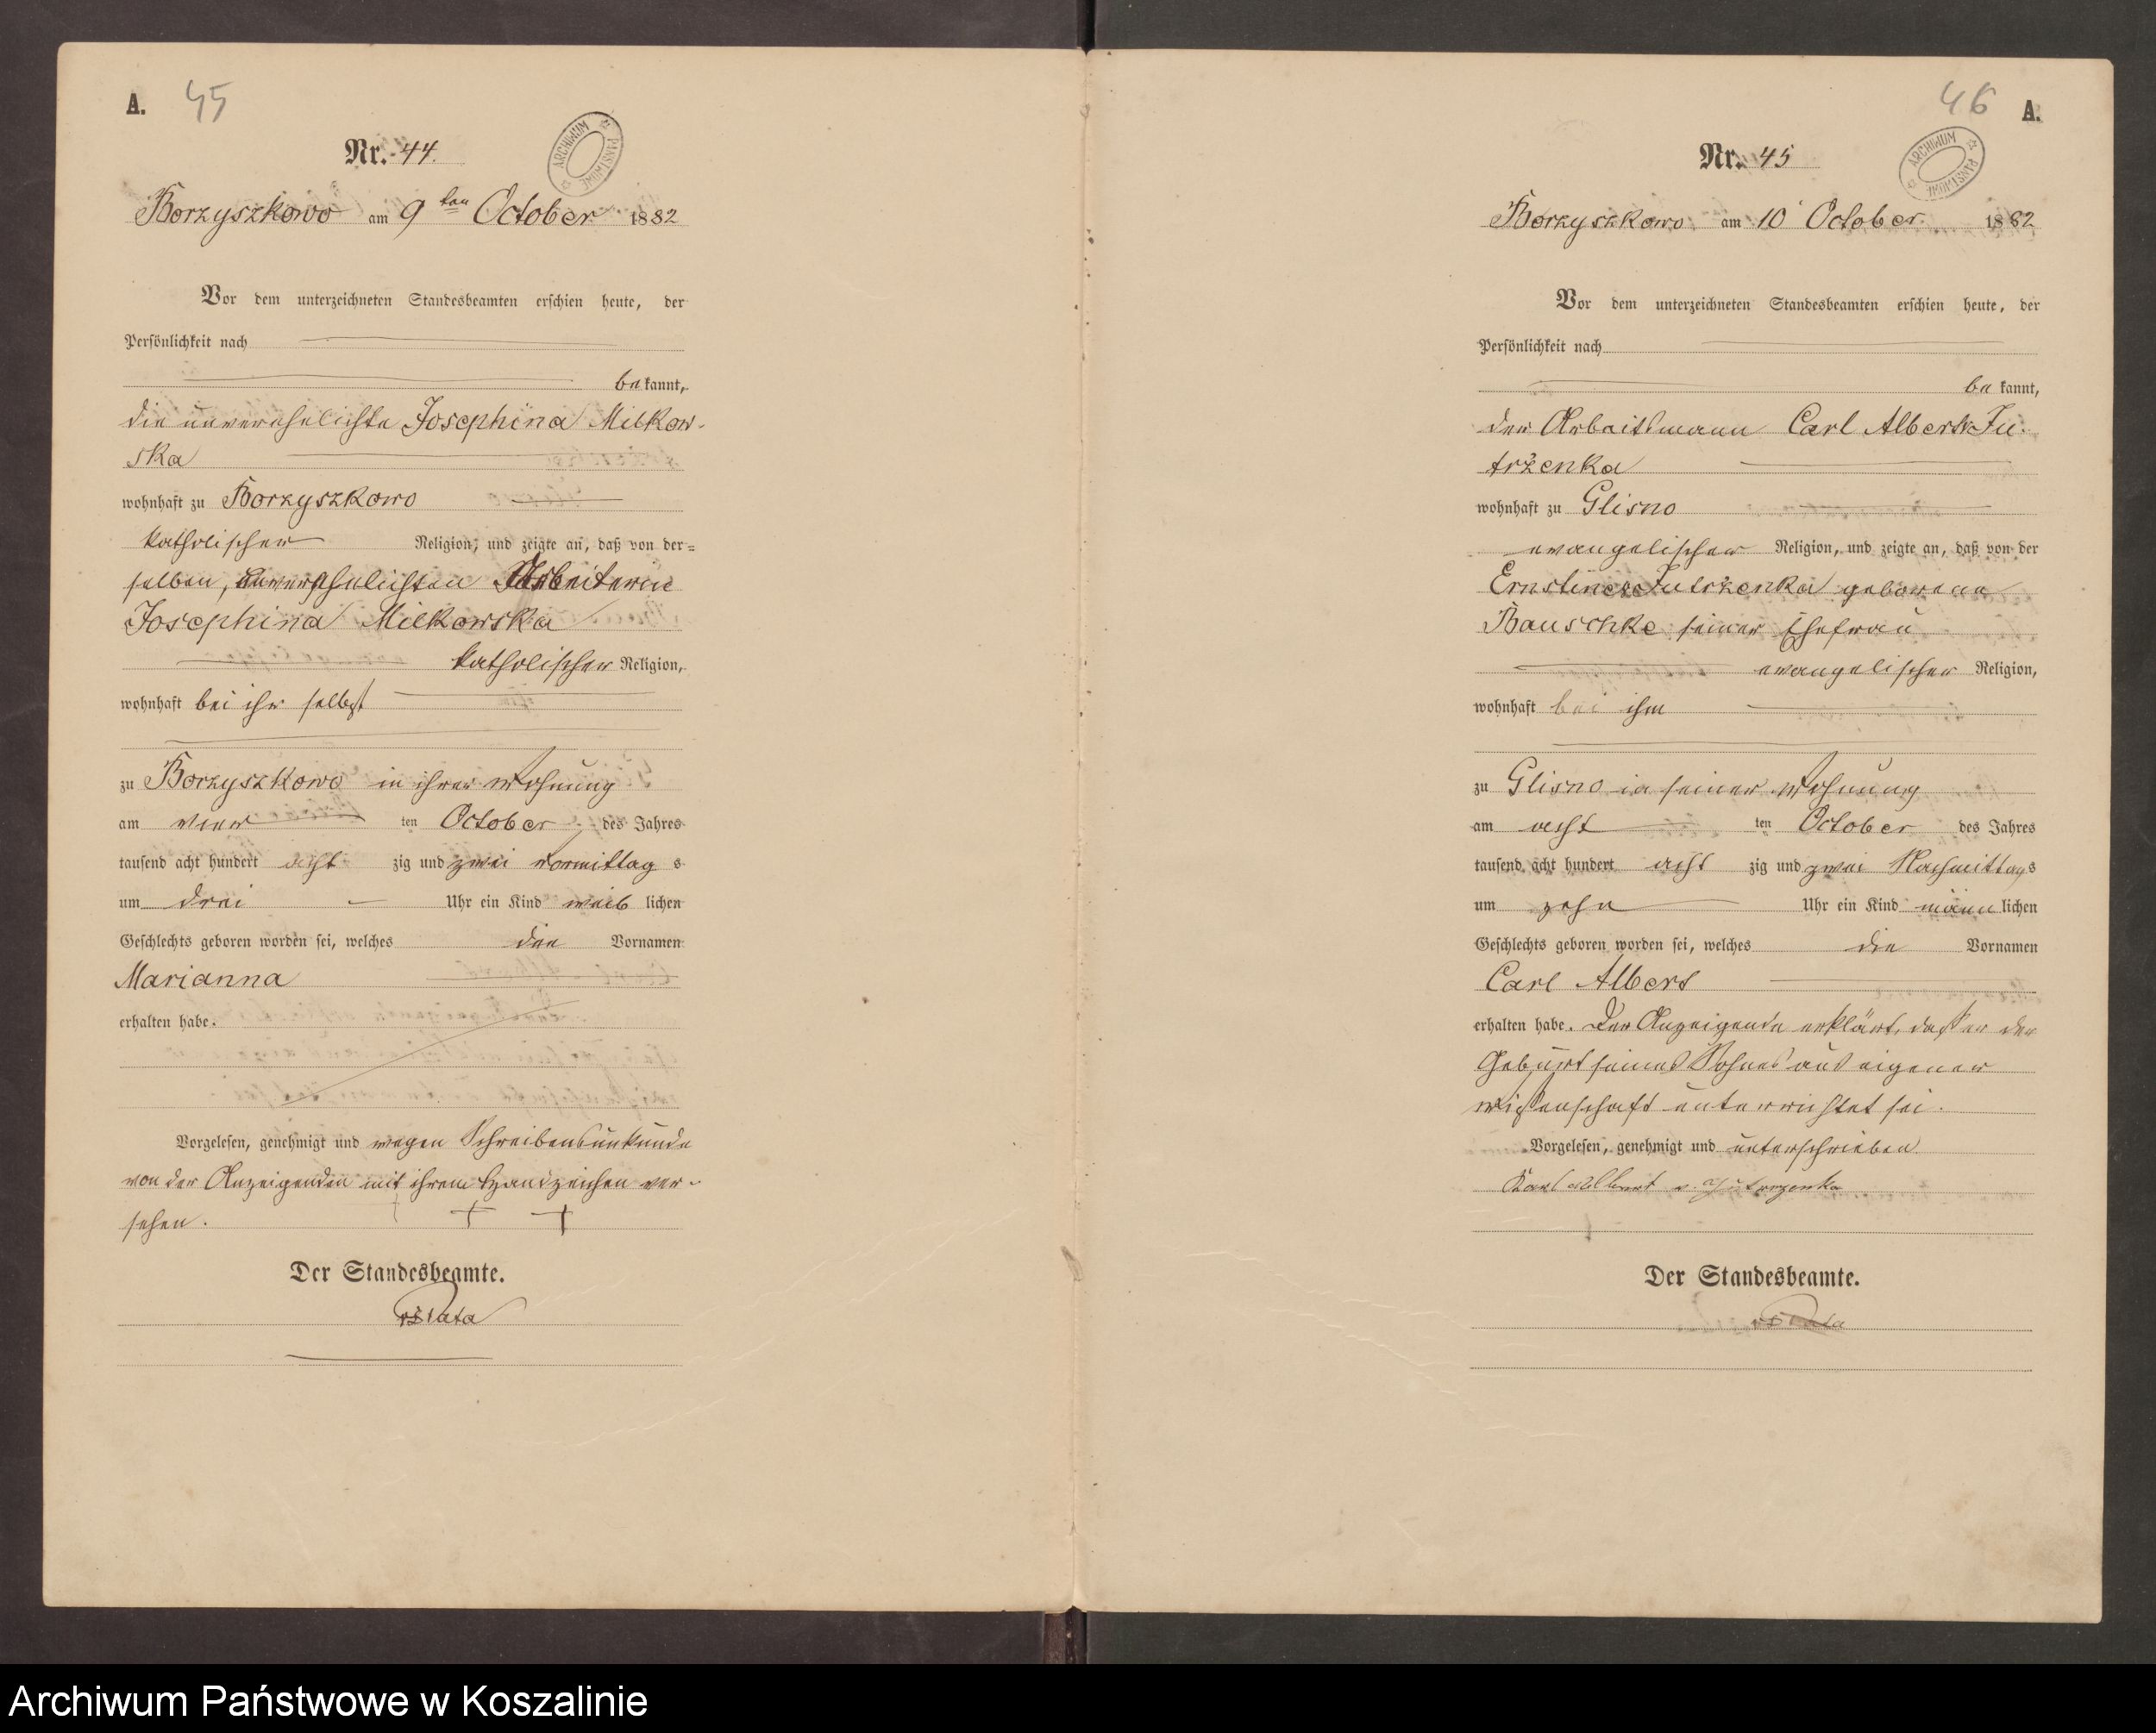 A. 45
ARCHIWUM PAŃSTWOWE
Nr. 44.
Borzyszkowo am 9ten October 1882
Vor dem unterzeichneten Standesbeamten erschien heute, der
Persönlichkeit nach
bekannt,
die unverehelichte Josephina Milkow-
ska
wohnhaft zu Borzyszkowo
katholischer Religion, und zeigte an, daß von der=
selben, unverehelichten Arbeiterin
Josephina Milkowska
katholischer Religion,
wohnhaft bei ihr selbst
zu Borzyszkowo in ihrer Wohnung
am vier ten October des Jahres
tausend acht hundert acht zig und zwei Vormittag s
um drei Uhr ein Kind weib lichen
Geschlechts geboren worden sei, welches den Vornamen
Marianna
erhalten habe.
Vorgelesen, genehmigt und wegen Schreibensunkunde
von der Anzeigenden mit ihrem Handzeichen ver-
sehen. + + +
Der Standesbeamte.
46 A.
ARCHIWUM PAŃSTWOWE
Nr. 45
Borzyszkowo am 10 October 1882
Vor dem unterzeichneten Standesbeamten erschien heute, der
Persönlichkeit nach
be kannt,
der Arbeitsmann Carl Albert Ju-
trzenka
wohnhaft zu Glisno
evangelischer Religion, und zeigte an, daß von der
Ernstine Jutrzenka geborene
Bauschke seiner Ehefrau
evangelischer Religion,
wohnhaft bei ihm
zu Glisno in seiner Wohnung
am acht ten October des Jahres
tausend acht hundert acht zig und zwei Nachmittags
um zehn Uhr ein Kind männ lichen
Geschlechts geboren worden sei, welches die Vornamen
Carl Albert
erhalten habe. Der Anzeigende erklärt, daß er der
Geburt seines Sohnes aus eigener
Wissenschaft unterrichtet sei.
Vorgelesen, genehmigt und unterschrieben
Karl Albert v. Jutrzenka
Der Standesbeamte.
Archiwum Państwowe w Koszalinie